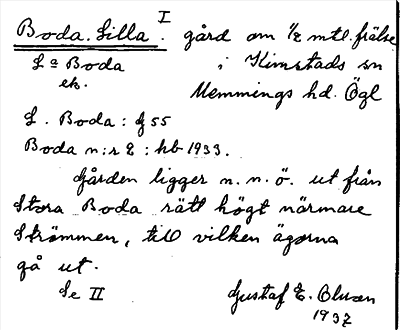 I
Boda. Lilla. gård om 1/2 mtl. frälse
La Boda i Kimstads sn
ek. Memmings hd. Ögl
L. Boda: G 55
Boda n:r 2: hb 1933.
Gården ligger n. n. ö. ut från
Stora Boda rätt högt närmare
Strömmen, till vilken ägorna
gå ut.
Se II Gustaf E. Olsson
1932